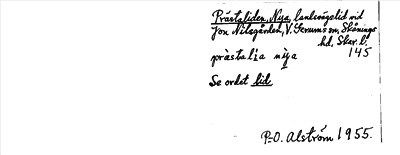 Prästaliden, Nya, landsvägslid vid
Jon Nilsgården, V. Gerums sn, Skånings
hd, Skar. l.
prästalia nija 145
Se ordet lid
P-O. Alström 1955.